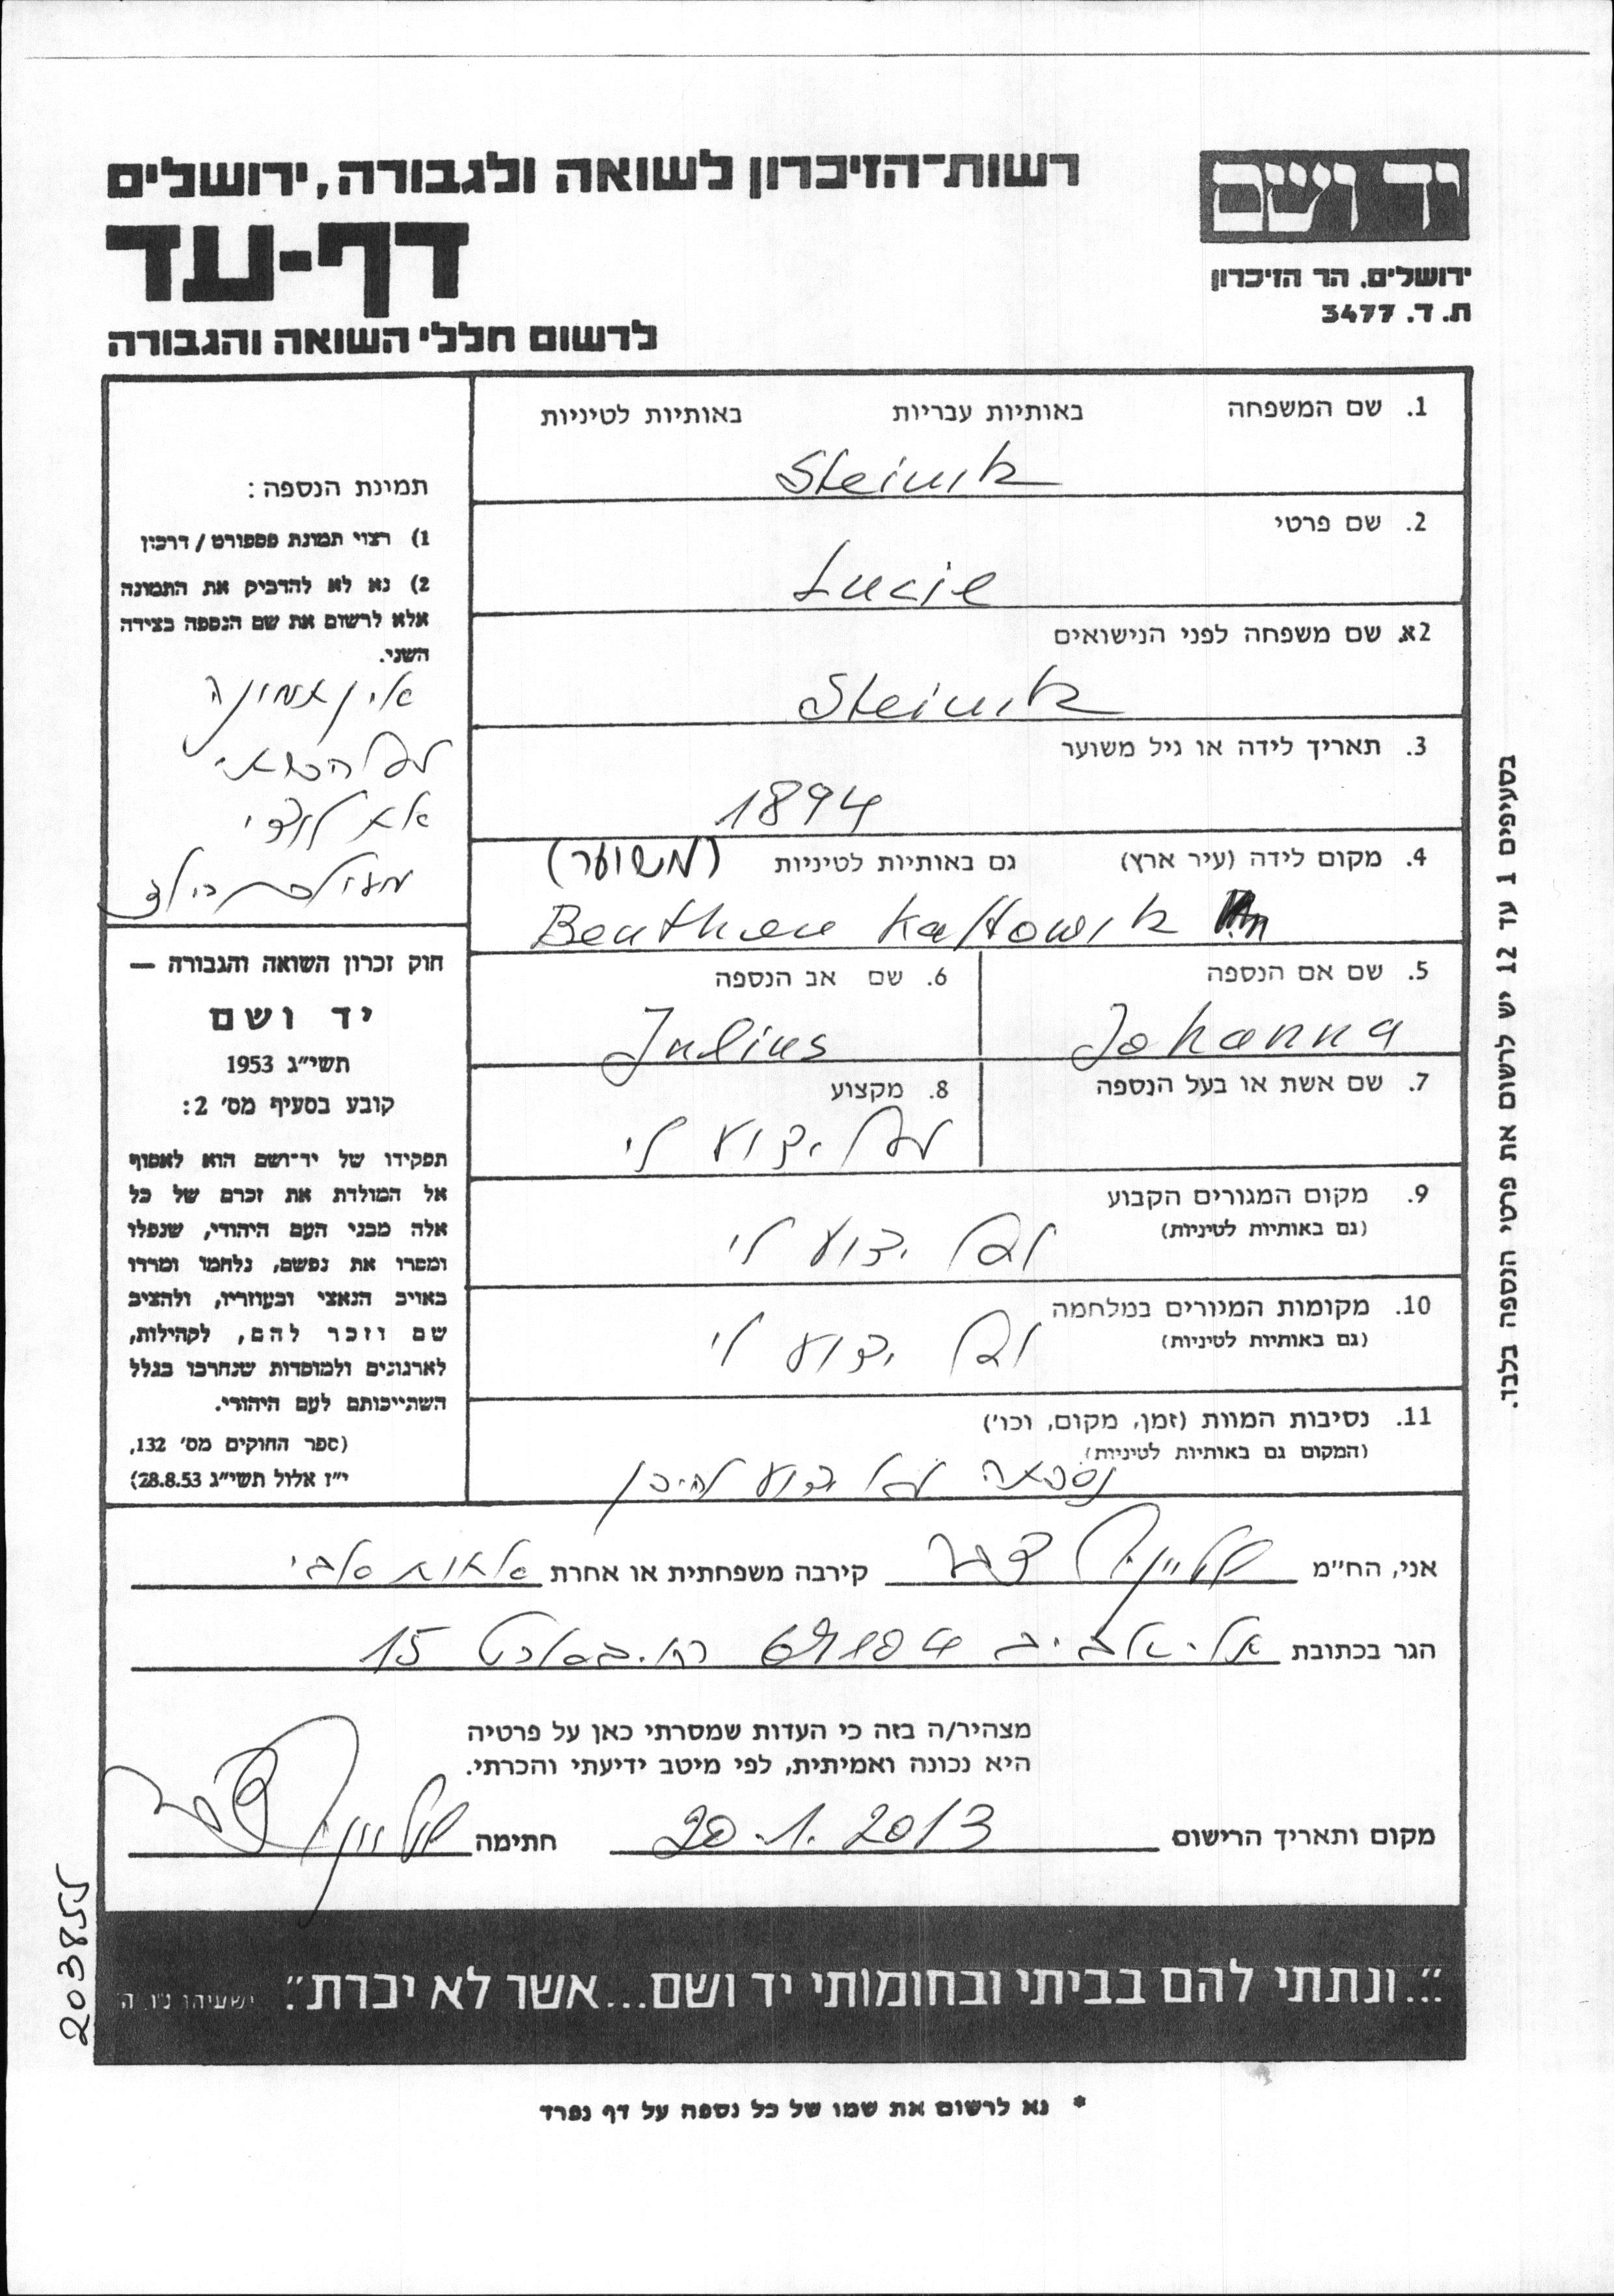 רשות־הזיכרון לשואה ולגבורה, ירושלים
דף-עד
לרשום חללי השואה והגבורה
יד ושם
ירושלים. הר הזיכרון
ת. ד. 3477
1. שם המשפחה באותיות עבריות באותיות לטיניות
Steinik
2. שם פרטי
Lucie
2א. שם משפחה לפני הנישואים
Steinik
3. תאריך לידה או גיל משוער
1894
4. מקום לידה (עיר ארץ) גם באותיות לטיניות (משוער)
Beuthen Kattowik
5. שם אם הנספה
Johanna
6. שם אב הנספה
Julius
7. שם אשת או בעל הנספה
8. מקצוע
לא ידוע לי
9. מקום המגורים הקבוע
(גם באותיות לטיניות)
לא ידוע לי
10. מקומות המגורים במלחמה
(גם באותיות לטיניות)
לא ידוע לי
11. נסיבות המוות (זמן, מקום, וכו')
(המקום גם באותיות לטיניות)
נספתה לא ידוע להיכן
תמינת הנספה:
1) רצוי תמונת פספורט / דרכון
2) נא לא להדביק את התמונה
אלא לרשום את שם הנספה בצידה
השני.
אין תמונה
לא
חוק זכרון השואה והגבורה —
יד ושם
תשי״ג 1953
קובע בסעיף מס׳ 2:
תפקידו של יד־ושם הוא לאסוף
אל המולדת את זכרם של כל
אלה מבני העם היהודי, שנפלו
ומסרו את נפשם, נלחמו ומרדו
באויב הנאצי ובעוזריו, ולהציב
שם וזכר להם, לקהילות,
לארגונים ולמוסדות שנחרבו בגלל
השתייכותם לעם היהודי.
(ספר החוקים מס׳ 132,
י״ז אלול תשי״ג 28.8.53)
בסעיפים 1 עד 12 יש לרשום את פרטי הנספה בלבד.
אני, הח״מ קירבה משפחתית או אחרת אחות אבי
הגר בכתובת תל-אביב 15
מצהיר/ה בזה כי העדות שמסרתי כאן על פרטיה
היא נכונה ואמיתית, לפי מיטב ידיעתי והכרתי.
מקום ותאריך הרישום 20.1.2013 חתימה
203855
״...ונתתי להם בביתי ובחומותי יד ושם...אשר לא יכרת״. ישעיהו נ״ו. ה׳
* נא לרשום את שמו של כל נספה על דף נפרד